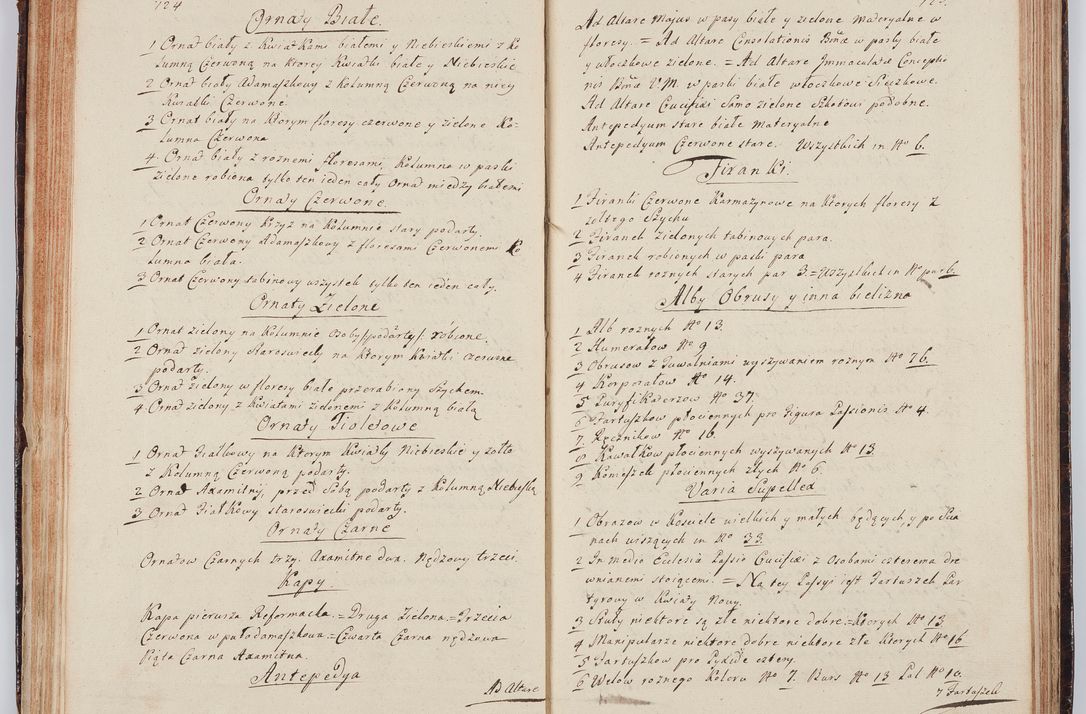 124
Ornaty Białe.
1 Ornat biały z Kwiatkami białemi y Niebieskiemi z Ko
lumną Czerwoną na ktorey Kwiatki białe y Niebieskie
2 Ornat biały Adamaszkowy z Kolumną Czerwoną na niey
Kwiatki Czerwone.
3 Ornat biały na ktorym floresy czerwone y zielone Ko-
lumna Czerwona
4. Ornat biały z roznemi floresami, Kolumna w paski
zielone robiona tylko ten ieden cały Ornat miedzy białemi
Ornaty Czerwone.
1 Ornat Czerwony Krzyż na Kolumnie stary podarty.
2 Ornat Czerwony Adamaszkowy z floresami Czerwonemi Ko
lumna biała.
3 Ornat Czerwony tabinowy wszystek tylko ten ieden cały.
Ornaty Zielone
1 Ornat zielony na Kolumnie Osoby /podarty/ robione.
2 Ornat zielony staroswiecki na ktorym Kwiatki czerwone
podarty.
3 Ornat zielony w floresy białe przerabiony Szychem.
4 Ornat zielony z Kwiatami zielonemi z Kolumną białą
Ornaty Fioletowe
1 Ornat Fiałkowy na ktorym Kwiaty Niebieskie y zołte
z Kolumną Czerwoną podarty.
2 Ornat Axamitny, przed Sobą podarty z Kolumną Niebieską
3 Ornat Fiałkowy staroswiecki podarty.
Ornaty Czarne
Ornatow Czarnych trzy. Axamitne dwa. Nędzowy trzeci.
Kapy.
Kapa pierwsza Reformacka = Druga Zielona = Trzecia
Czerwona w puł adamaszkowa = Czwarta Czarna nędzowa
Piąta Czarna Axamitna.
Antepedya
Ad Altare
Ad Altare Majus w pasy białe y zielone materyalne w
floresy. = Ad Altare Consolationis Bmæ w paski białe
y włoczkowe zielone. = Ad Altare Immaculatæ Conceptio
nis Bmæ V. M. w paski białe włoczkowe Sieczkowe.
Ad Altare Crucifixi Samo zielone Szkotowi podobne.
Antepedyum stare białe materyalne
Antepedyum Czerwone stare. Wszystkich in No 6.
Firanki.
1 Firanki Czerwone Karmazynowe na ktorych floresy z
zołtego Szychu
2 Firanek Zielonych tabinowych para.
3 Firanek robionych w paski para
4 Firanek roznych starych par 3 = Wszystkich in No par 6.
Alby Obrusy y inna bielizna
1 Alb roznych No 13.
2 Humerałow No 9
3 Obrusow z Tuwalniami wyszywaniem roznym No 76.
4 Korporałow No 14.
5 Puryfikaterzow No 37.
6 Fartuszkow płociennych pro Figura Passionis No 4.
7 Ręcznikow No 16.
8 Kawałkow płociennych wyszywanych No 13
9 Komeszek płociennych złych No 6.
Varia Supellex
1 Obrazow w Kosciele wielkich y małych będących y po Scia
nach wiszących in No 33.
2 In medio Eclesiæ Passio Crucifixi z Osobami czterema dre
wnianemi stoiącemi. = Na tey Passyi iest Fartuszek Par
tyrowy w Kwiaty Nowy.
3 Stuły niektore są złe niektore dobre = ktorych No 13
4 Manipularze niektore dobre niektore złe ktorych No 16
5 Fartuszkow pro Pyxide cztery.
6 Welow roznego Koloru No 7. Burs No 13 Pal No 10.
7 Fartuszek